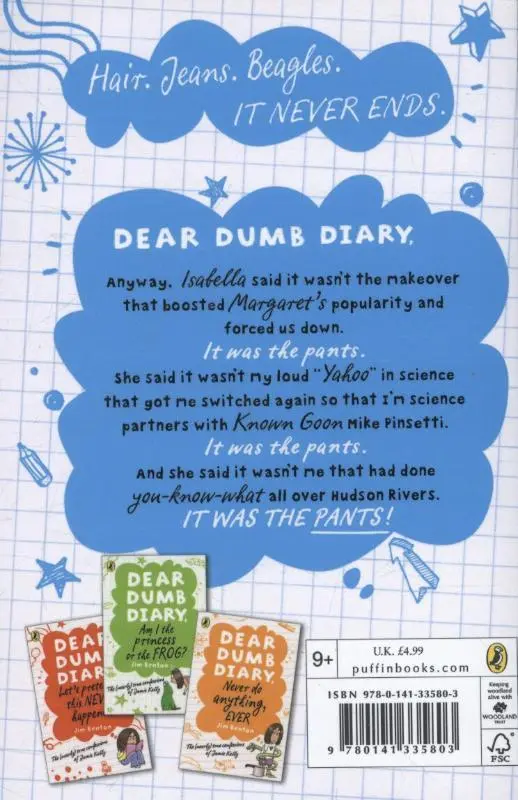 Hair. Jeans. Beagles.
IT NEVER ENDS.
DEAR DUMB DIARY,
Anyway, Isabella said it wasn't the makeover
that boosted Margaret's popularity and
forced us down.
It was the pants.
She said it wasn't my loud "Yahoo" in science
that got me switched again so that I'm science
partners with Known Goon Mike Pinsetti.
It was the pants.
And she said it wasn't me that had done
you-know-what all over Hudson Rivers.
IT WAS THE PANTS!
DEAR
DUMB
DIARY,
Am I the
princess
or the FROG?
Jim Benton
The (nearly) true confessions
of Jamie Kelly
DEAR
DUMB
DIARY,
Let's prete
this NEV
happen
Jim Benton
The (nearly) true confessions
of Jamie Kelly
DEAR
DUMB
DIARY,
Never do
anything,
EVER
Jim Benton
The (nearly) true confessions
of Jamie Kelly
9+
U.K. £4.99
puffinbooks.com
ISBN 978-0-141-33580-3
9 780141 335803
Keeping
woodland
alive with
WOODLAND
TRUST
FSC